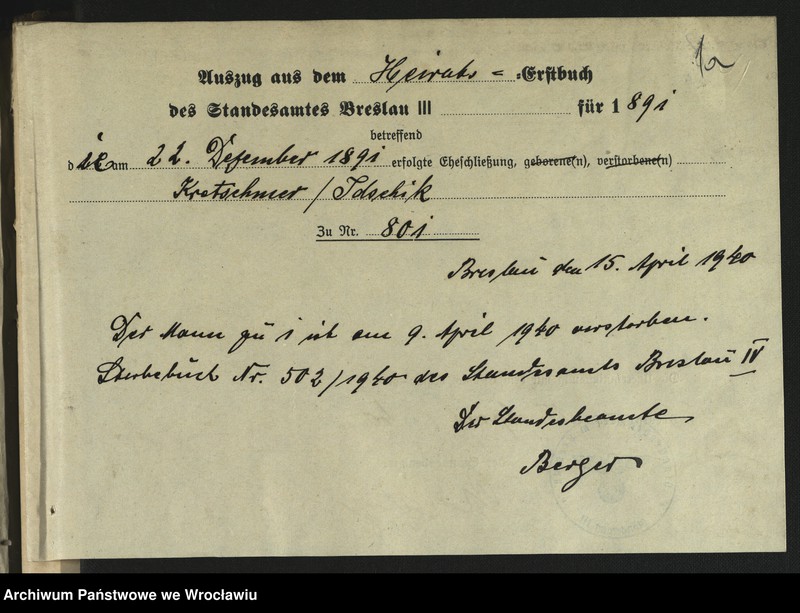 1a
Auszug aus dem Heirats= -Erstbuch
des Standesamtes Breslau III für 1891
betreffend
die am 22. Dezember 1891 erfolgte Eheschließung, geborene(n), verstorbene(n)
Kretschmer / Idschik
Zu Nr. 801
Breslau den 15. April 1940
Der Mann zu 1 ist am 9. April 1940 verstorben.
Sterbebuch Nr. 502/1940 des Standesamts Breslau IV
Der Standesbeamte
Berger
Archiwum Państwowe we Wrocławiu